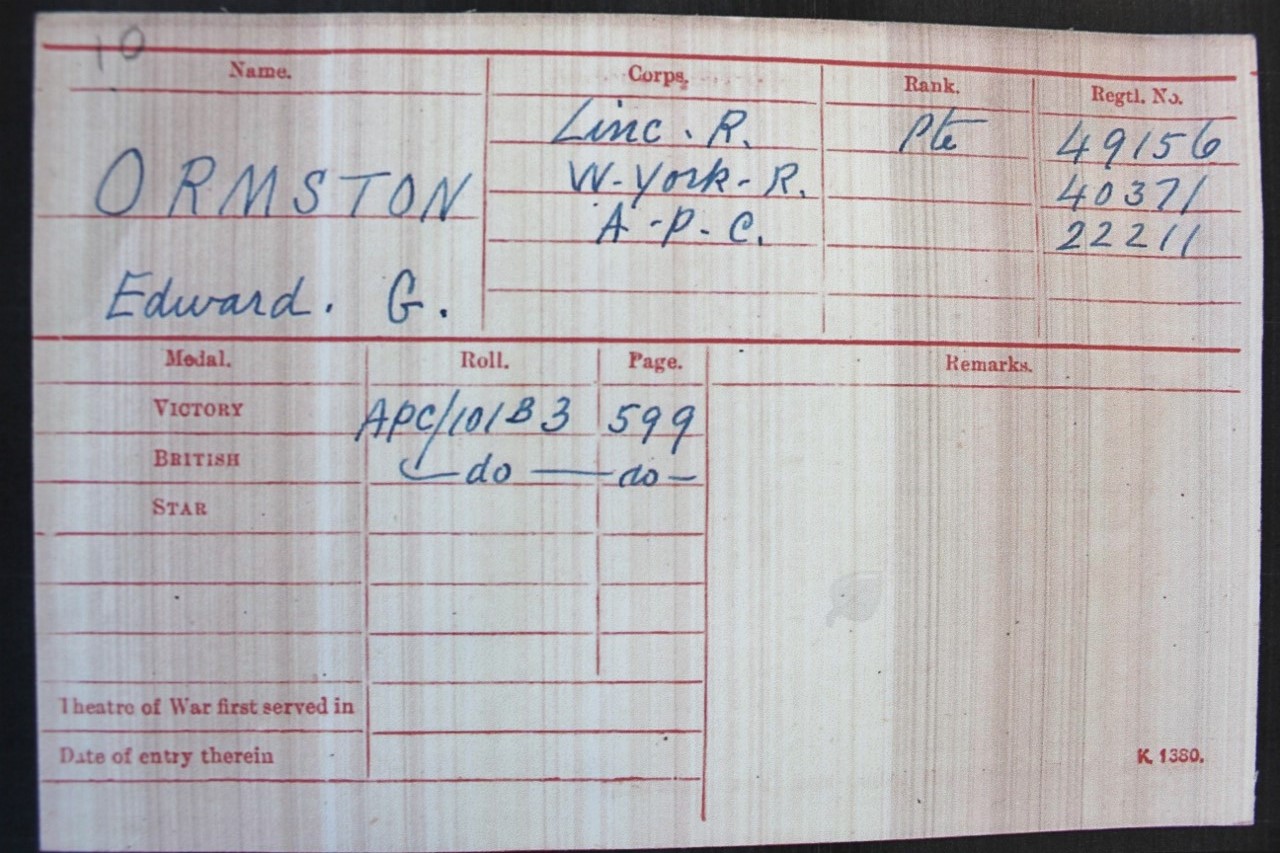 10
Name. Corps. Rank. Regtl. No.
Linc. R. Pte 49156
ORMSTON W-York-R. 40371
A-P-C. 22211
Edward. G.
Medal. Roll. Page. Remarks.
VICTORY APC/101B3 599
BRITISH do do
STAR
Theatre of War first served in
Date of entry therein
K. 1380.